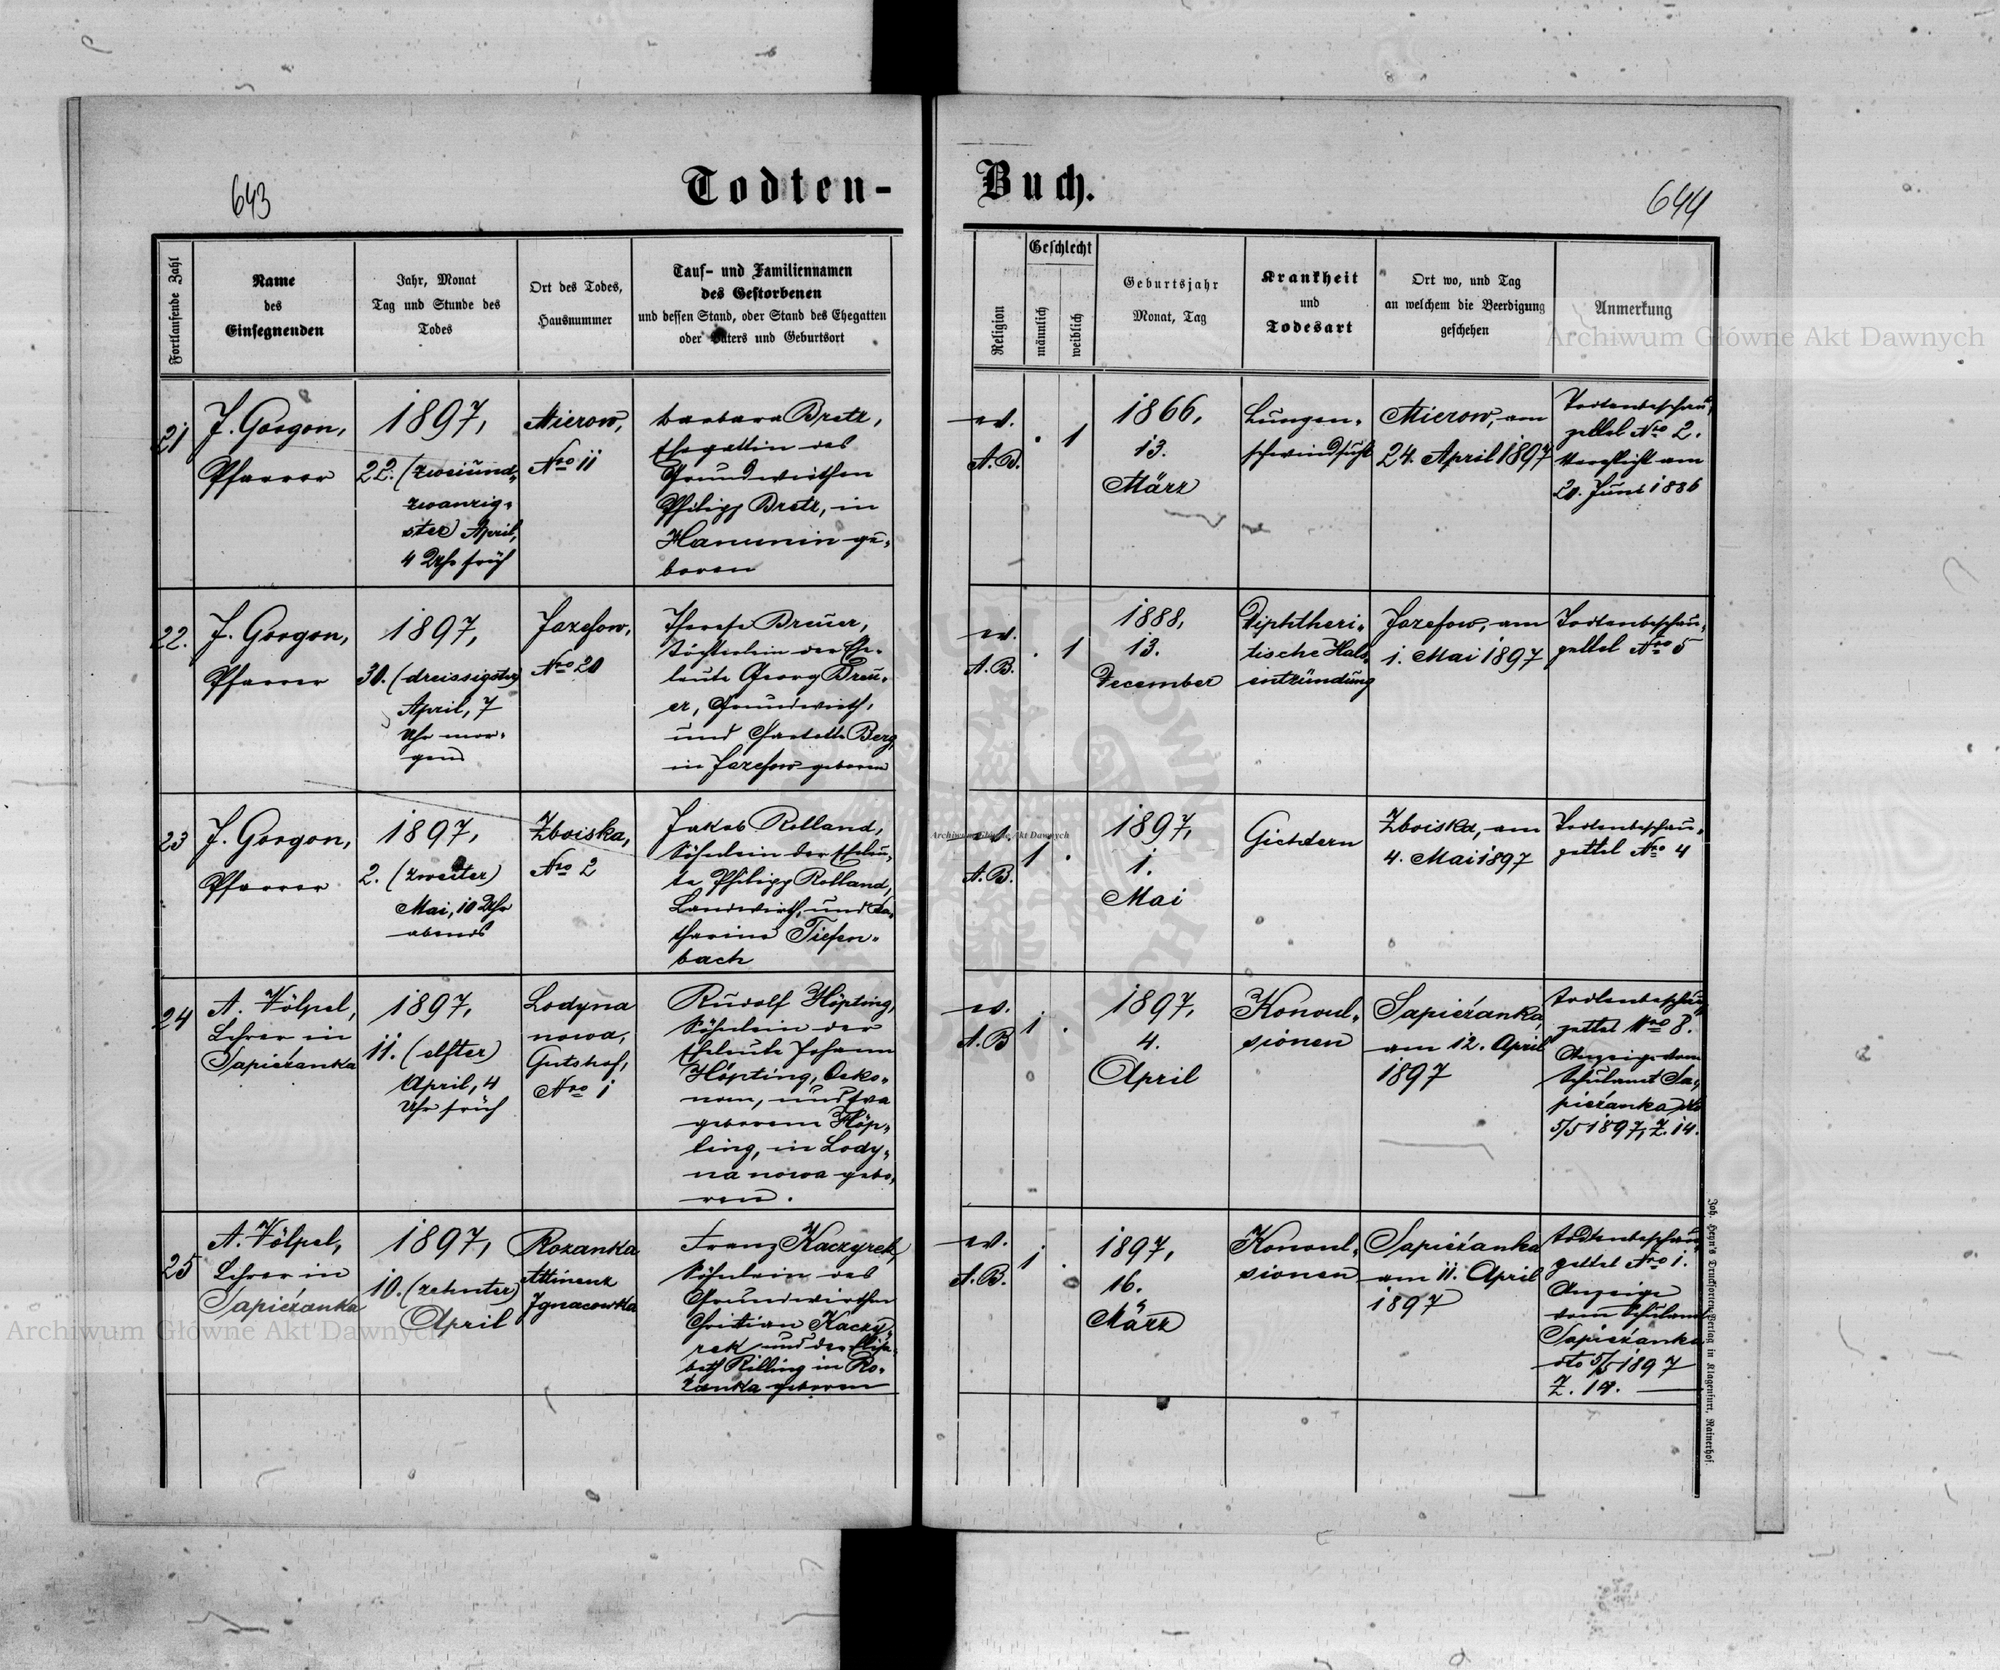 643
Todten-
Buch.
644
Fortlaufende Zahl
Name
des
Einsegnenden
Jahr, Monat
Tag und Stunde des
Todes
Ort des Todes,
Hausnummer
Tauf- und Familiennamen
des Gestorbenen
und dessen Stand, oder Stand des Ehegatten
oder Vaters und Geburtsort
Religion
Geschlecht
männlich
weiblich
Geburtsjahr
Monat, Tag
Krankheit
und
Todesart
Ort wo, und Tag
an welchem die Beerdigung
geschehen
Anmerkung
21
J. Gorgon,
Pfarrer
1897,
22. (zweiund-
zwanzig-
ster) April,
4 Uhr früh
Mierow,
Nro 11
Barbara Bretz,
Ehegattin des
Grundwirthen
Philipp Bretz, in
Hanunin ge-
boren
ev.
A. B.
. 1
1866,
13.
März
Lungen-
schwindsucht
Mierow, am
24. April 1897
Todtenbeschau-
zettel Nro 2.
Verehlicht am
20. Juni 1886
22.
J. Gorgon,
Pfarrer
1897,
30. (dreissigster)
April, 7
Uhr mor-
gens
Jozefow,
Nro 20
Therese Breuer,
Töchterlein der Ehe-
leute Georg Breu-
er, Grundwirth,
und Charlotte Berg,
in Jozefow geboren
ev.
A. B.
. 1
1888,
13.
December
Diphtheri-
tische Hals-
entzündung
Jozefow, am
1. Mai 1897
Todtenbeschau-
zettel Nro 5
23
J. Gorgon,
Pfarrer
1897,
2. (zweiter)
Mai, 10 Uhr
abends
Zboiska,
Nro 2
Jakob Rolland,
Söhnlein der Eheleu-
te Philipp Rolland,
Landwirth, und Ka-
tharina Tiefen-
bach
ev.
A. B.
1 .
1897,
1.
Mai
Gichtern
Zboiska, am
4. Mai 1897
Todtenbeschau-
zettel Nro 4
24
A. Völpel,
Lehrer in
Sapieżanka
1897,
11. (elfter)
April, 4
Uhr früh
Lodyna
nowa,
Gutshof,
Nro 1
Rudolf Höpting,
Söhnlein der
Eheleute Johann
Höpting, Oeko-
nom, und Eva
geborene Höp-
ting, in Lody-
na nowa gebo-
ren.
ev.
A. B
1 .
1897,
4.
April
Konvul-
sionen
Sapieżanka,
am 12. April
1897
Todtenbeschau-
zettel Nro 8.
Anzeige vom
Schulamt Sa-
pieżanka dto
5/5 1897, Z. 14.
25
A. Völpel,
Lehrer in
Sapieżanka
1897,
10. (zehnter)
April
Rozanka
Attinenz
Ignacowka
Franz Kaczyrek,
Söhnlein des
Grundwirthen
Christian Kaczy-
rek und der Elisa-
beth Rilling in Ro-
żanka geboren
ev.
A. B.
1 .
1897,
16.
März
Konvul-
sionen
Sapieżanka
am 11. April
1897
Todtenbeschau-
zettel Nro 1.
Anzeige
vom Schulamt
Sapieżanka
dto 5/5 1897
Z. 14.
Joh. Heyn's Drucksorten-Verlag in Klagenfurt, Rainerhof.
Archiwum Główne Akt Dawnych
Archiwum Główne Akt Dawnych
Archiwum Główne Akt Dawnych